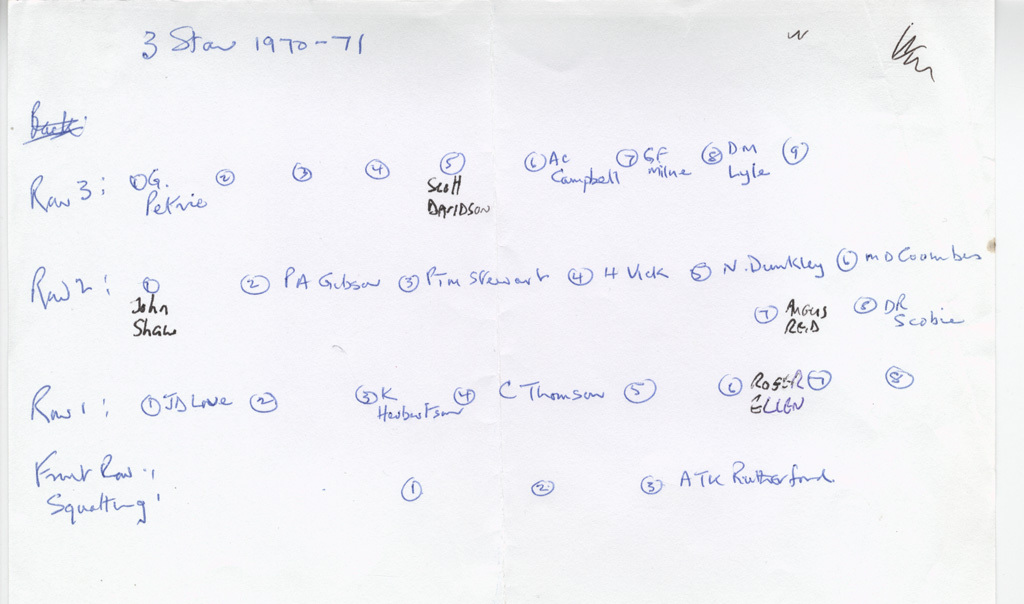 3 Star 1970-71
Back:
Row 3: ① G. Petrie ② ③ ④ ⑤ Scott DAVIDSON ⑥ AC Campbell ⑦ GF Milne ⑧ DM Lyle ⑨
Row 2: ① John Shaw ② PA Gibson ③ PTM Stewart ④ H Vick ⑤ N. Dunkley ⑥ MD Coombes
⑦ ANGUS REID ⑧ DR Scobie
Row 1: ① JD Love ② ③ K Herbertson ④ C Thomson ⑤ ⑥ ROGER ELLEN ⑦ ⑧
Front Row:
Squatting' ① ② ③ ATK Rutherford